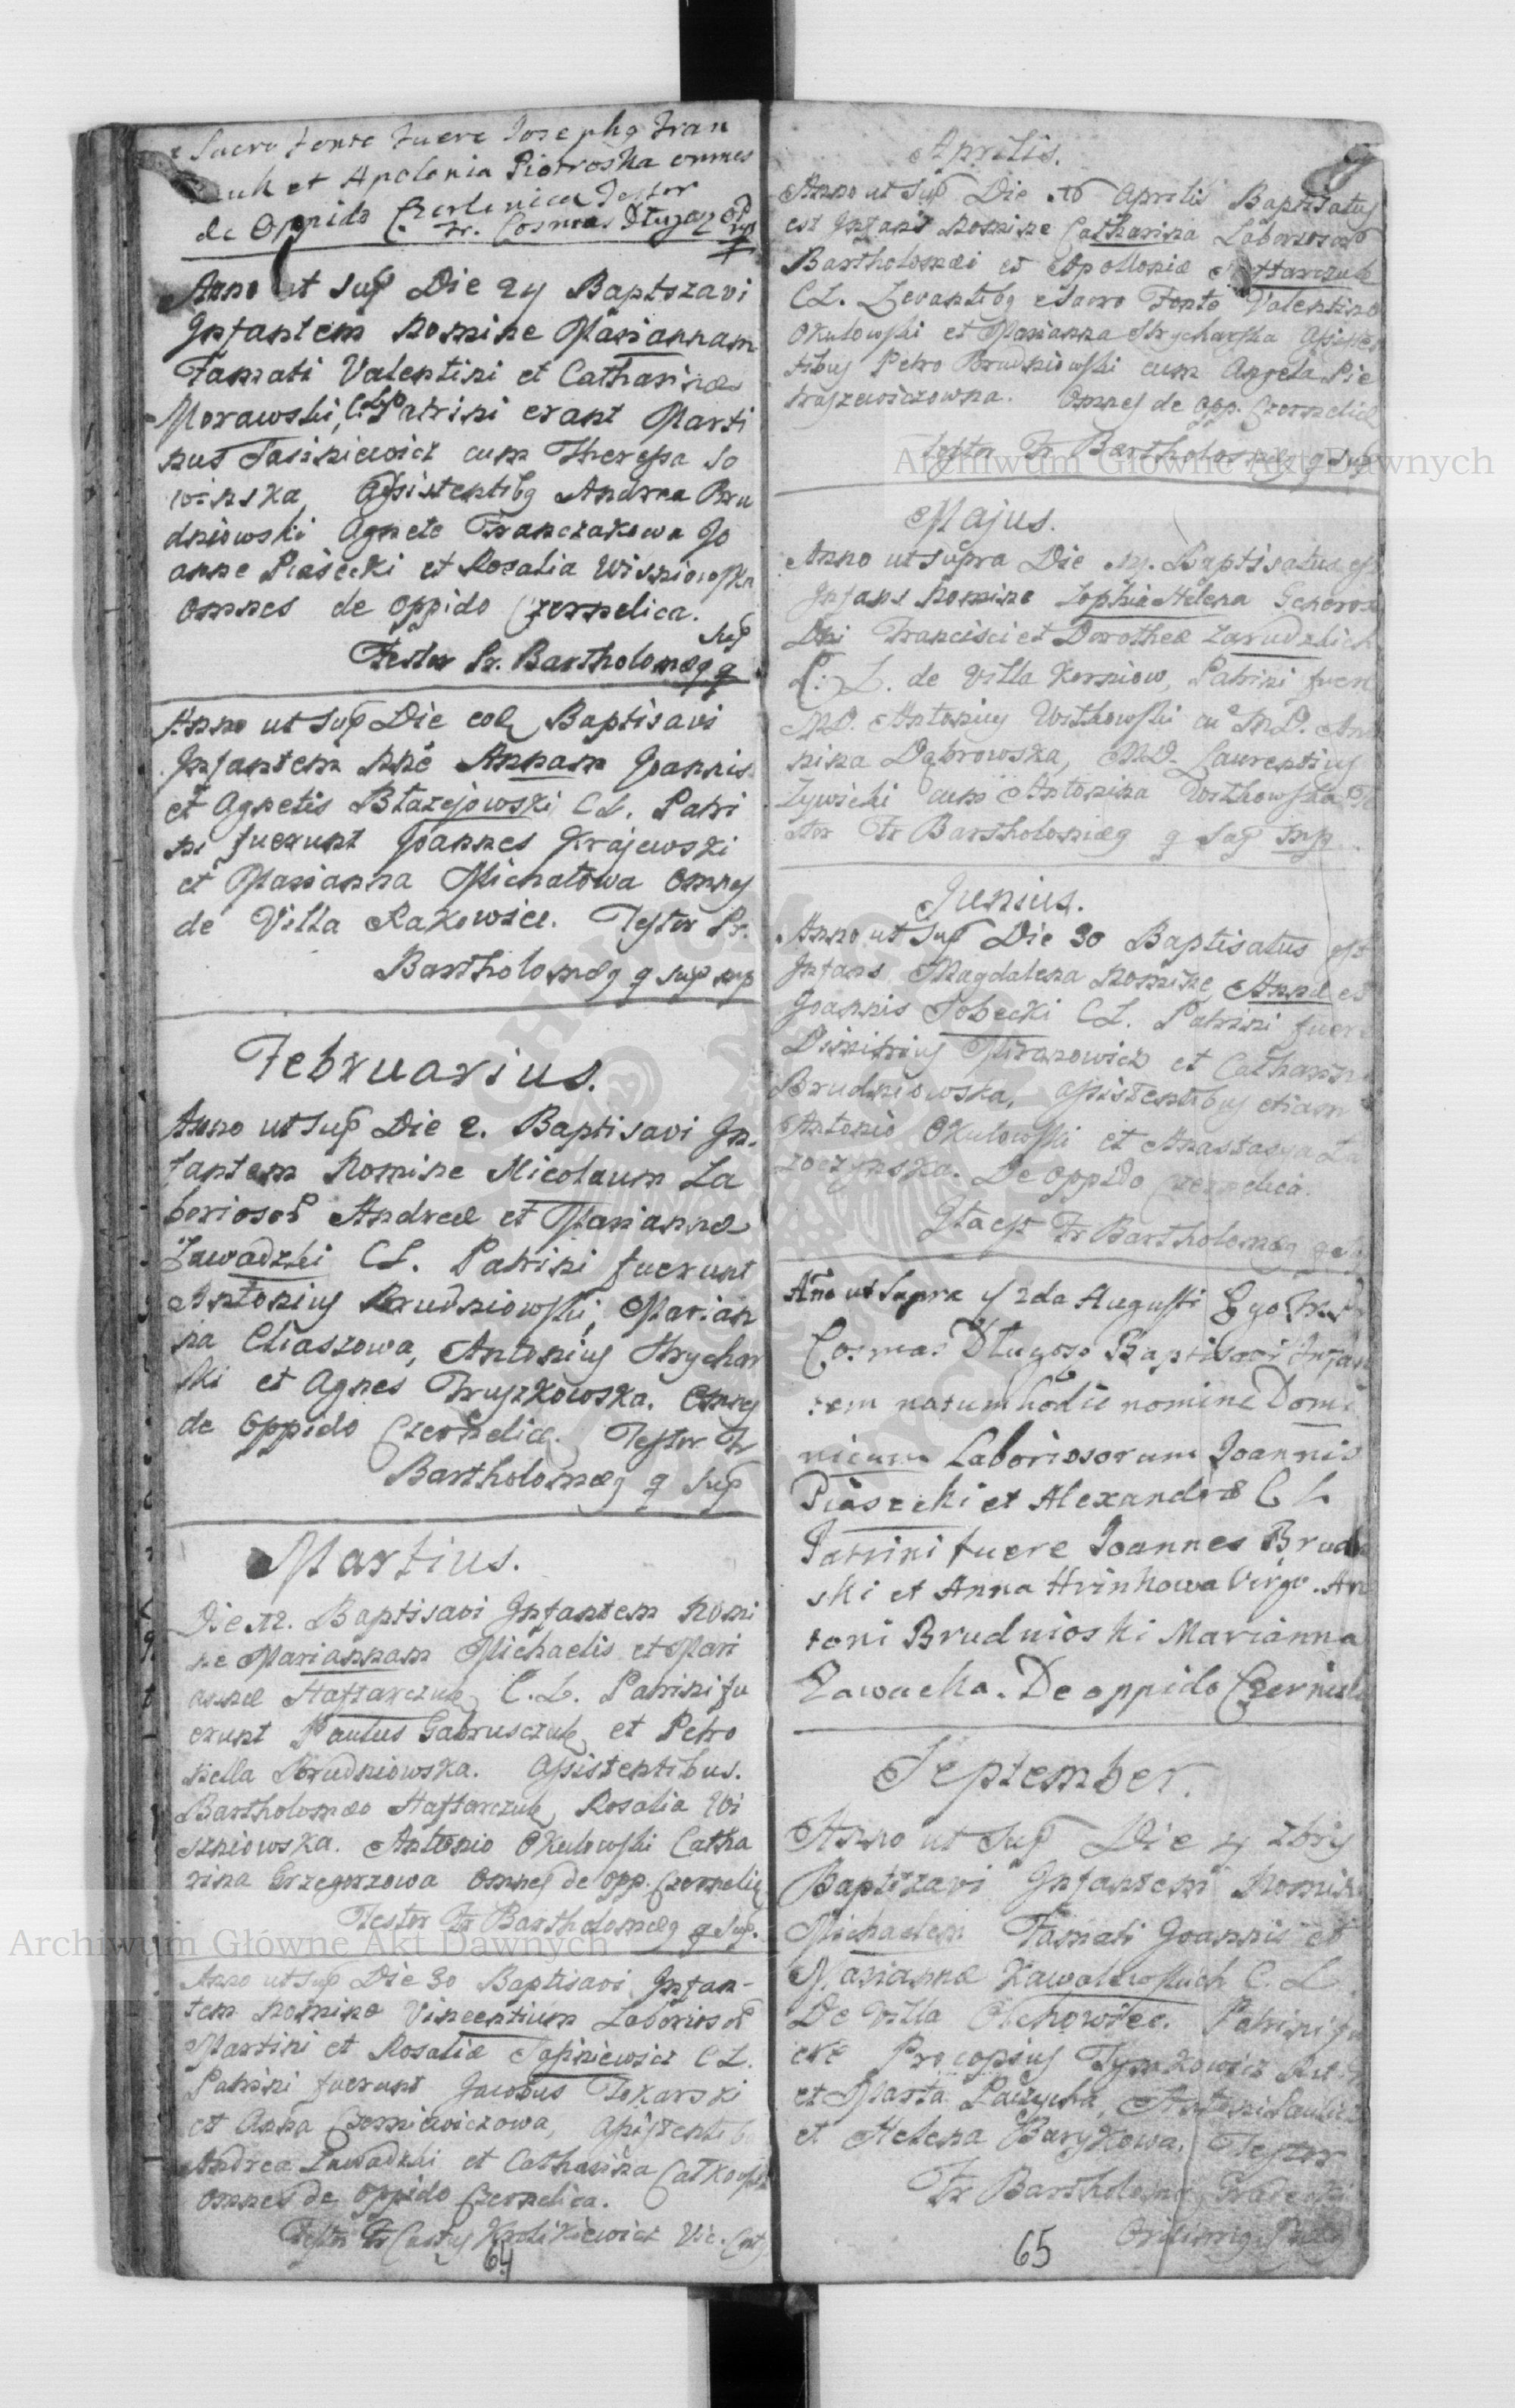 e Sacro Fonte Fuere Josephg Fran
et Apolonia Piotroska omnes
de Oppido Czerlenica Testor
Fr. Cosmas Długosz
Anno ut sup Die 24 Baptizavi
Infantem Nomine Mariannam
Famati Valentini et Catharinæ
Morawski, C. L. Patrini erant Marti
nus Jasiniewicz cum Theressa So
winska, Assistentibg Andrea Bru
dniowski Agnete Franczakowa Jo
anne Piasecki et Rosalia Wisniowska
Omnes de oppido Czernelica.
Testor Fr. Bartholomæg q sup
Anno ut sup Die eod Baptisavi
Infantem nne Annam Joannis
et Agnetis Błazejowski C L. Patri
ni fuerunt Joannes Krajewski
et Marianna Michałowa Omnes
de Villa Rakowice. Testor Fr.
Bartholomæg q sup mp
Februarius.
Anno ut sup Die 2. Baptisavi In
fantem Nomine Nicolaum La
borioso Andreæ et Mariannæ
Zawadzki CL. Patrini fuerunt
Antonius Brudniowski, Marian
na Eliaszowa, Antonius Hrychor
ski et Agnes Truszkowska. Omnes
de Oppido Czernelicæ. Testor Fr
Bartholomæg q sup
Martius.
Die 12. Baptisavi Infantem Nomi
ne Mariannam Michaelis et Mari
annæ Haftarczuk C. L. Patrini fu
erunt Paulus Gabrusczuk et Petro
nella Brudniowska. Assistentibus.
Bartholomæo Haftarczuk, Rosalia Wi
szniowska. Antonio Okulowski Catha
rina Grzegorzowa Omnes de Opp. Czernelic
Testor Fr Bartholomæg q sup.
Anno ut sup Die 30 Baptisavi Infan-
tem Nomine Vincentium Laborioso
Martini et Rosaliæ Jasiniewicz C L.
Patrini fuerunt Jacobus Tokarski
et Anna Czerniewiczowa, Assistentib
Andrea Zawadzki et Catharina
Omnes de Oppido Czernelica.
Testor Fr Królikiewicz Vic.
64
Aprilis.
Anno ut sup Die 16 Aprilis Baptisatus
est Infans Nomine Catharina Laborioso
Bartholomæi et Apolloniæ Haftarczuk
CL. Levantibg e Sacro Fonte Valentino
Okulowski et Marianna Hrycharska Assisten
tibus Petro Brudniowski cum Angela Pie
traszewiczowna. Omnes de Opp. Czernelicæ
Testor Fr Bartholomæg q Sup
Majus.
Anno ut supra Die Baptisatus est
Infans Nomine Zophia Helena Generos
Dni Francisci et Dorotheæ Zarudzkich
C. L. de Villa Korniow, Patrini fuer
MD. Antonius Witkowski cu MD. An
nina Dąbrowska, MD. Laurentius
Zywicki cum Antonina Witkowska Te
stor Fr Bartholomæg q Sup mp
Junius.
Anno ut sup Die 30 Baptisatus est
Infans Magdalena Nomine Annæ et
Joannis Sobecki CL. Patrini fuere
Dimitrius Miranowicz et Catharin
Brudniowska, Assistentibus etiam
Antonio Okulowski et Anastasya La
zoczynska. De Oppido Czernelica.
Ita est Fr Bartholomæg q S
Ano ut Supra 2da Augusti Ego Fr.
Cosmas Długosz Baptisavi Infan
tem natum hodie nomine Domi
nicum Laboriosorum Joannis
Piaszeki et Alexandræ C L
Patrini fuere Joannes Brud
ski et Anna Hrinkowa Virgo. An
toni Brudnioski Marianna
Zawacka. De oppido Czernieli
September.
Anno ut Sup Die 4 7bris
Baptizavi Infantem Nomin
Michaelem Famati Joannis et
Mariannæ Kawalewskich C. L.
De Villa Olchowiec. Patrini fu
ere Procopius Tymkowicz
et Marta Antoni
et Helena Barykowa. Testor
Fr Bartholomæ
65
Archiwum Główne Akt Dawnych
Archiwum Główne Akt Dawnych